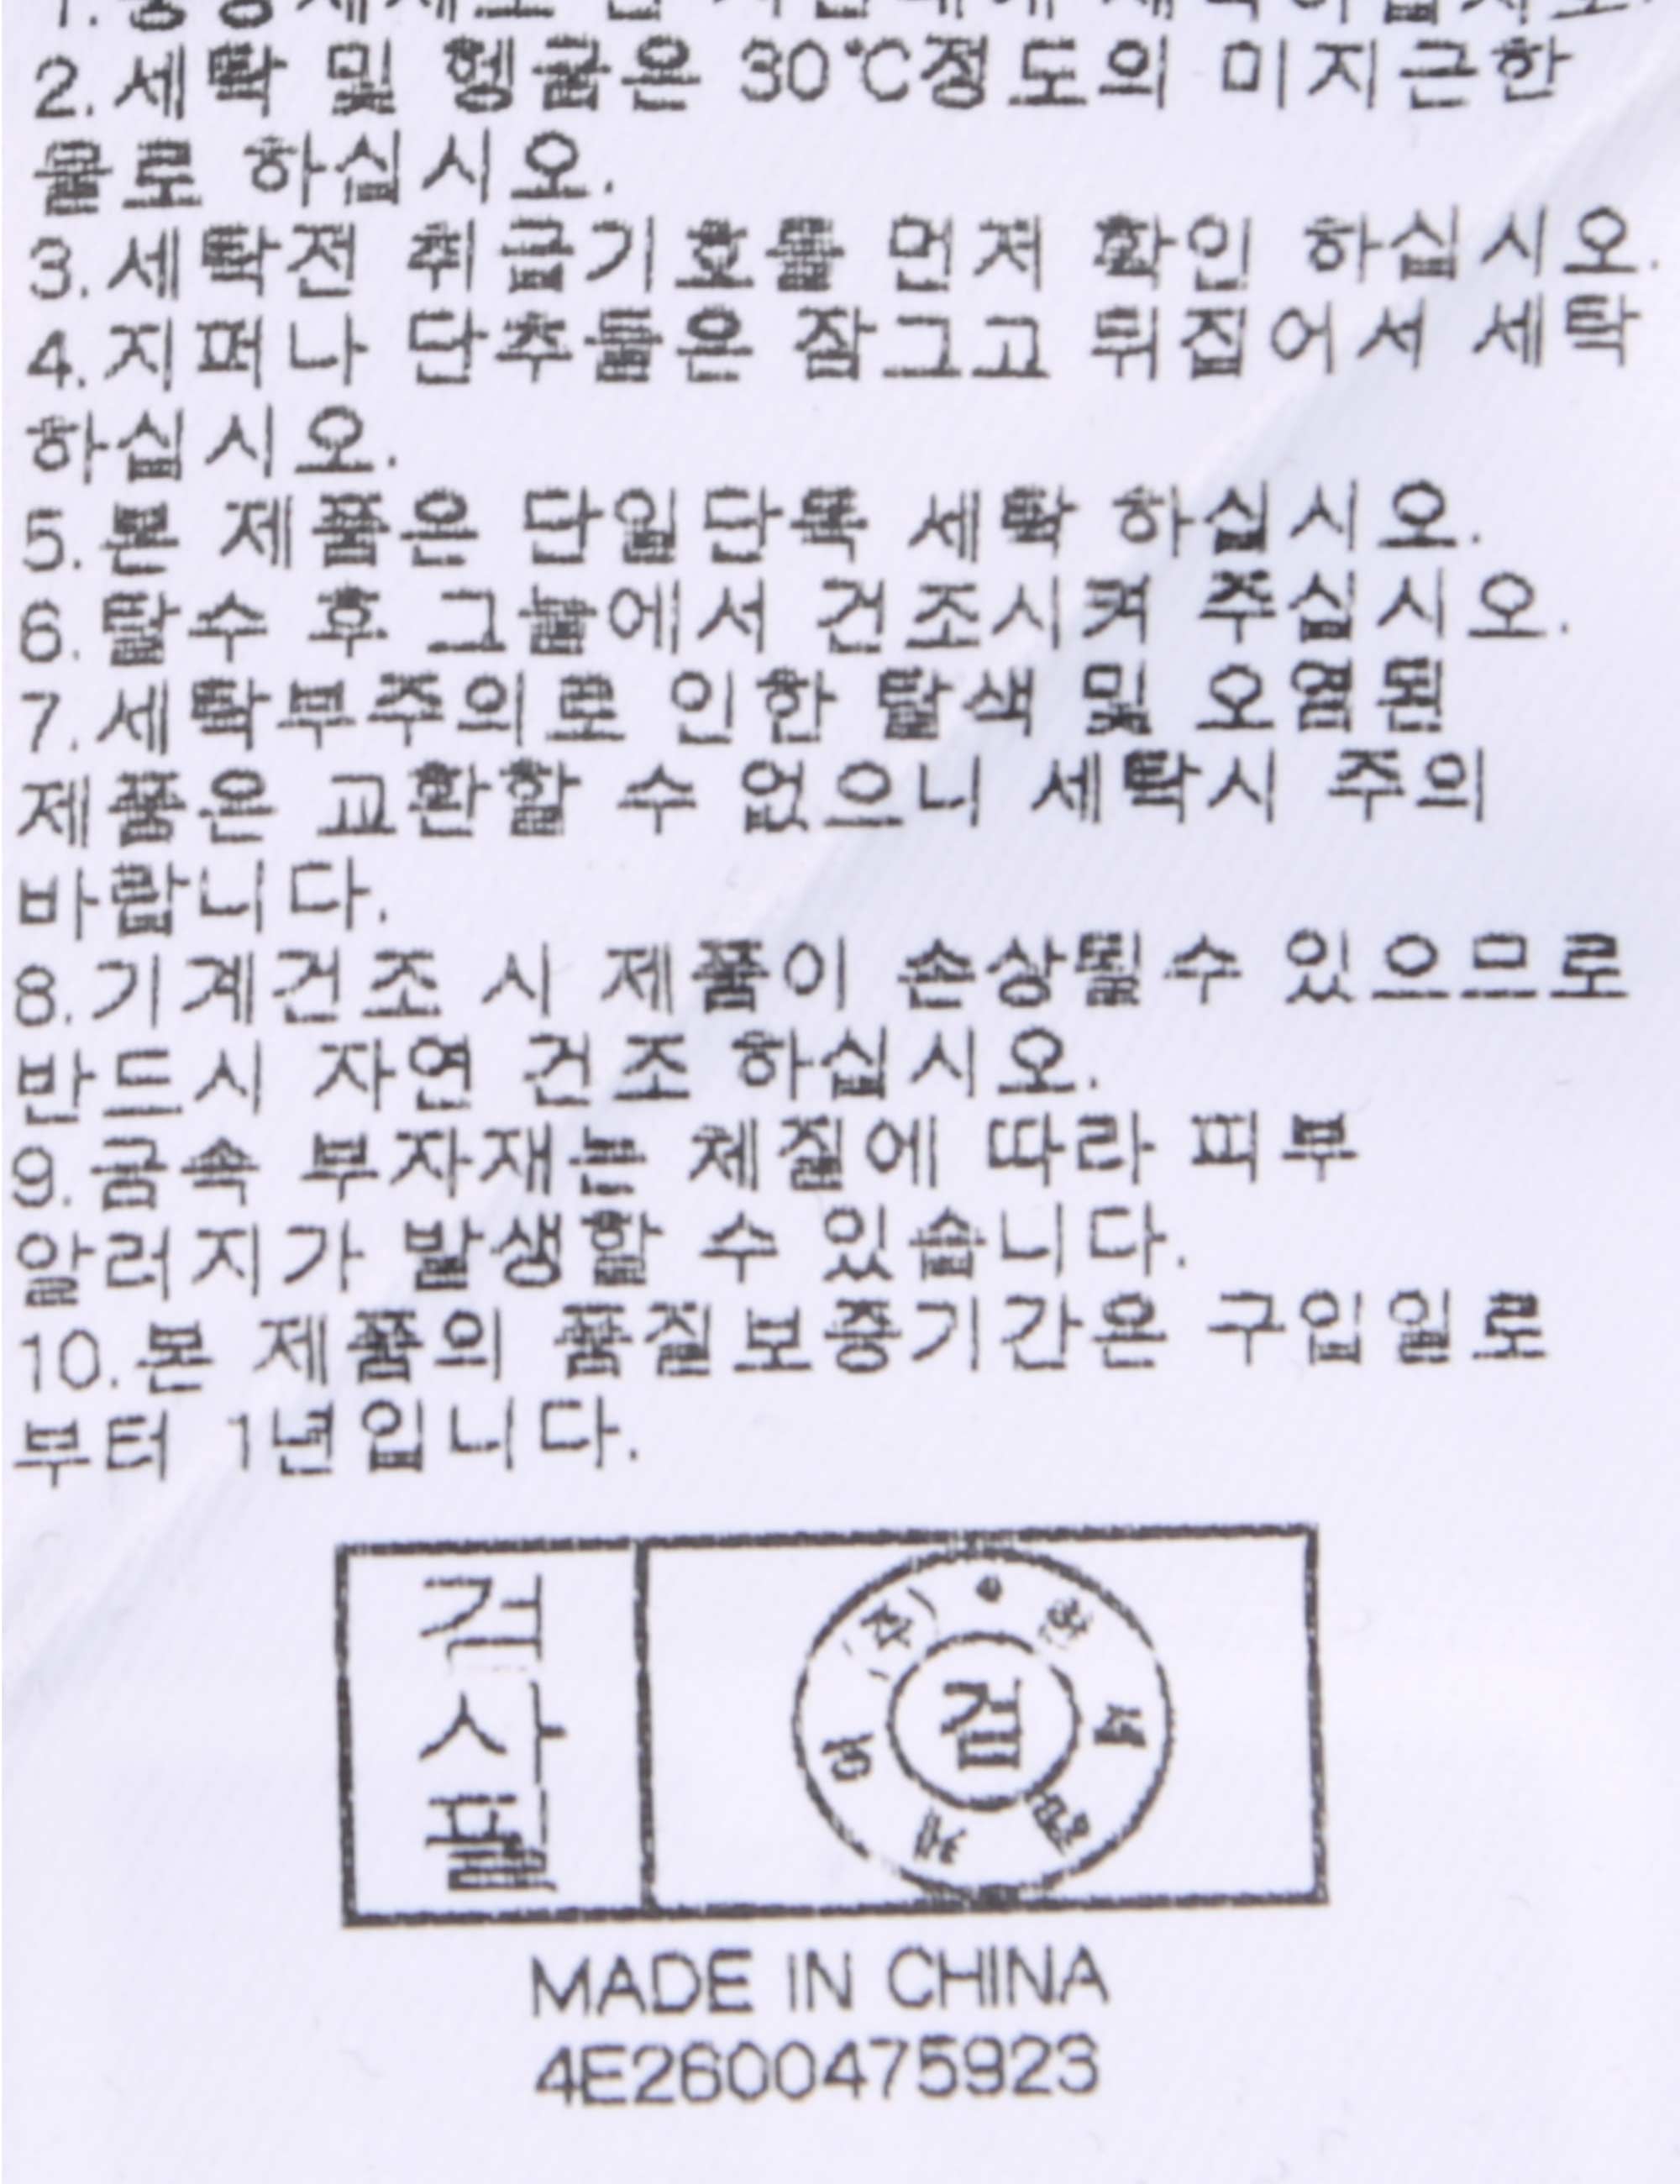 2.세탁 및 헹굼은 30℃정도의 미지근한
물로 하십시오.
3.세탁전 취급기호를 먼저 확인 하십시오.
4.지퍼나 단추들은 잠그고 뒤집어서 세탁
하십시오.
5.본 제품은 단일단독 세탁 하십시오.
6.탈수 후 그늘에서 건조시켜 주십시오.
7.세탁부주의로 인한 탈색 및 오염된
제품은 교환할 수 없으니 세탁시 주의
바랍니다.
8.기계건조 시 제품이 손상될수 있으므로
반드시 자연 건조 하십시오.
9.금속 부자재는 체질에 따라 피부
알러지가 발생할 수 있습니다.
10.본 제품의 품질보증기간은 구입일로
부터 1년입니다.
검사필
검
MADE IN CHINA
4E2600475923